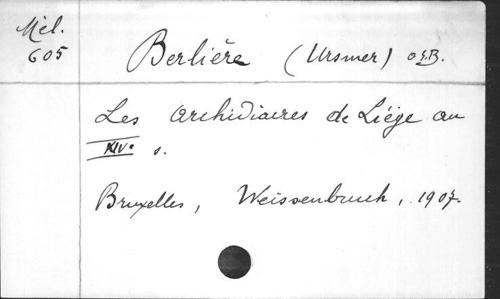 Mél.
605
Berlière (Ursmer) o.s.B.
Les archidiacres de Liége au
XIVe s.
Bruxelles, Weissenbruch, 1907.